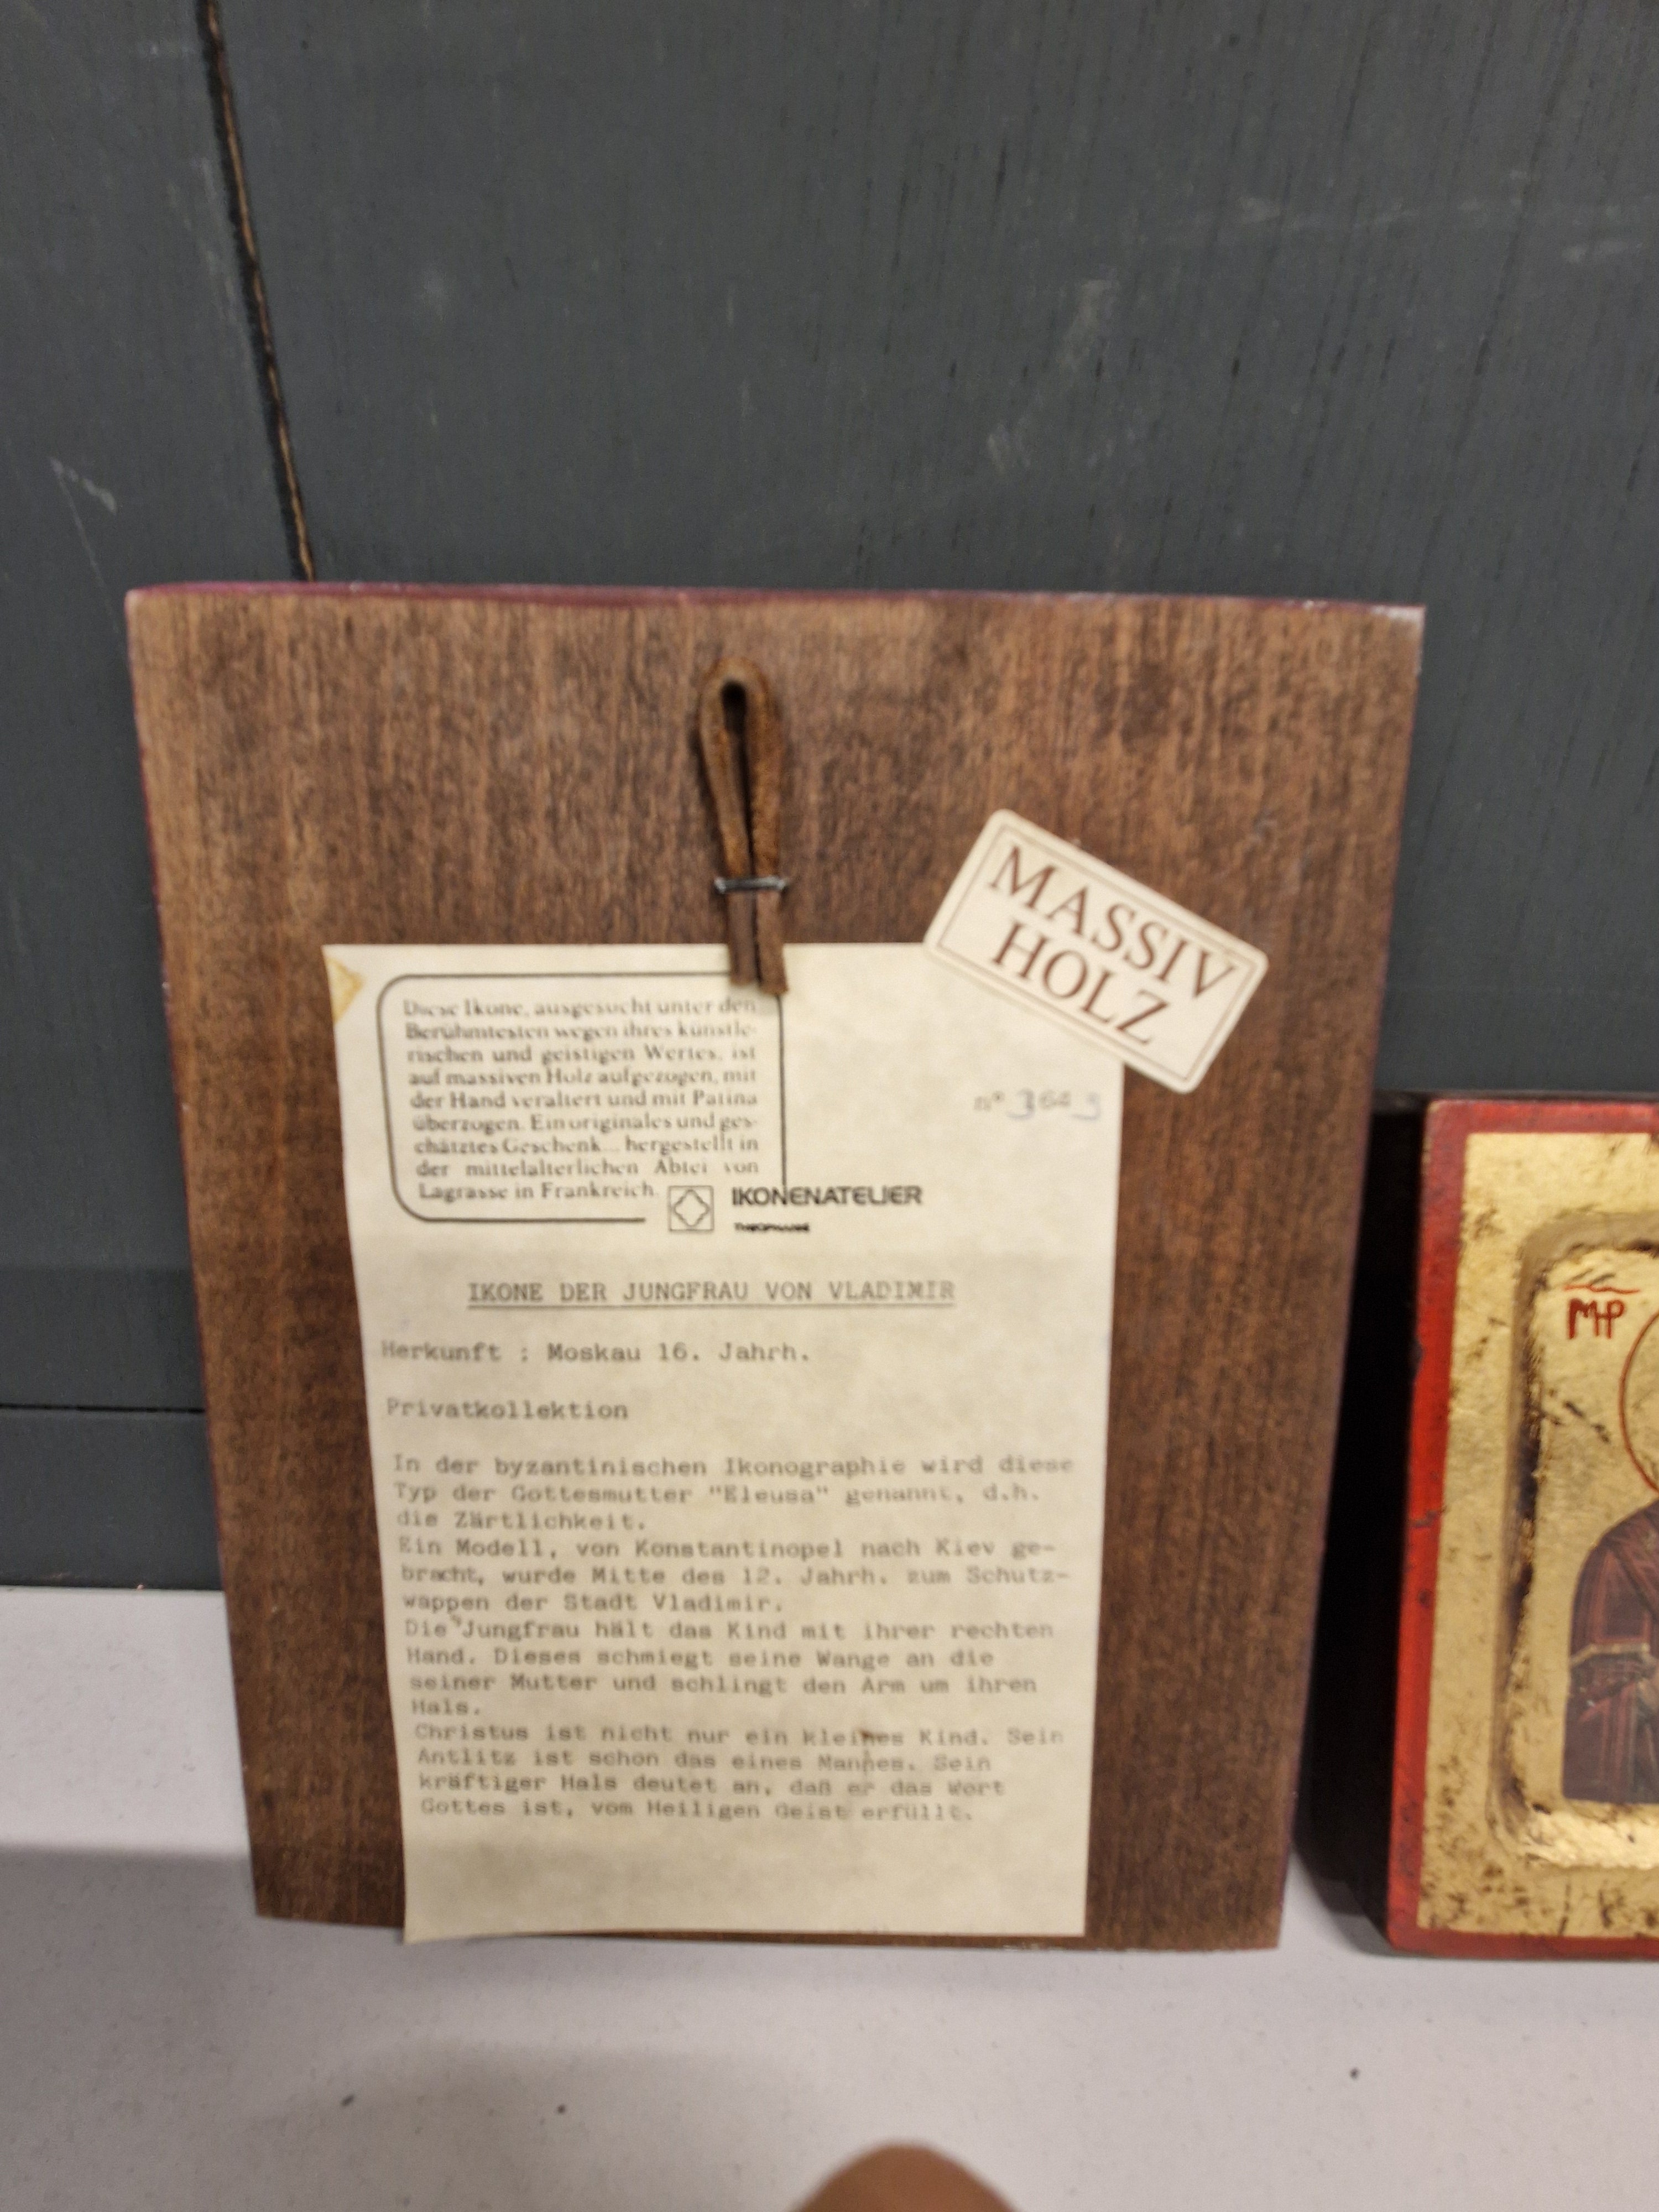 MASSIV
HOLZ
Diese Ikone, ausgesucht unter den
Berühmtesten wegen ihres künstle-
rischen und geistigen Wertes, ist
auf massiven Holz aufgezogen, mit
der Hand veraltert und mit Patina
überzogen. Ein originales und ges-
chätztes Geschenk... hergestellt in
der mittelalterlichen Abtei von
Lagrasse in Frankreich.
n°
IKONENATELIER
THEOPHANE
IKONE DER JUNGFRAU VON VLADIMIR
Herkunft : Moskau 16. Jahrh.
Privatkollektion
In der byzantinischen Ikonographie wird diese
Typ der Gottesmutter "Eleusa" genannt, d.h.
die Zärtlichkeit.
Ein Modell, von Konstantinopel nach Kiev ge-
bracht, wurde Mitte des 12. Jahrh. zum Schutz-
wappen der Stadt Vladimir.
Die Jungfrau hält das Kind mit ihrer rechten
Hand. Dieses schmiegt seine Wange an die
seiner Mutter und schlingt den Arm um ihren
Hals.
Christus ist nicht nur ein kleines Kind. Sein
Antlitz ist schon das eines Mannes. Sein
kräftiger Hals deutet an, daß er das Wort
Gottes ist, vom Heiligen Geist erfüllt.
ΜΗΡ